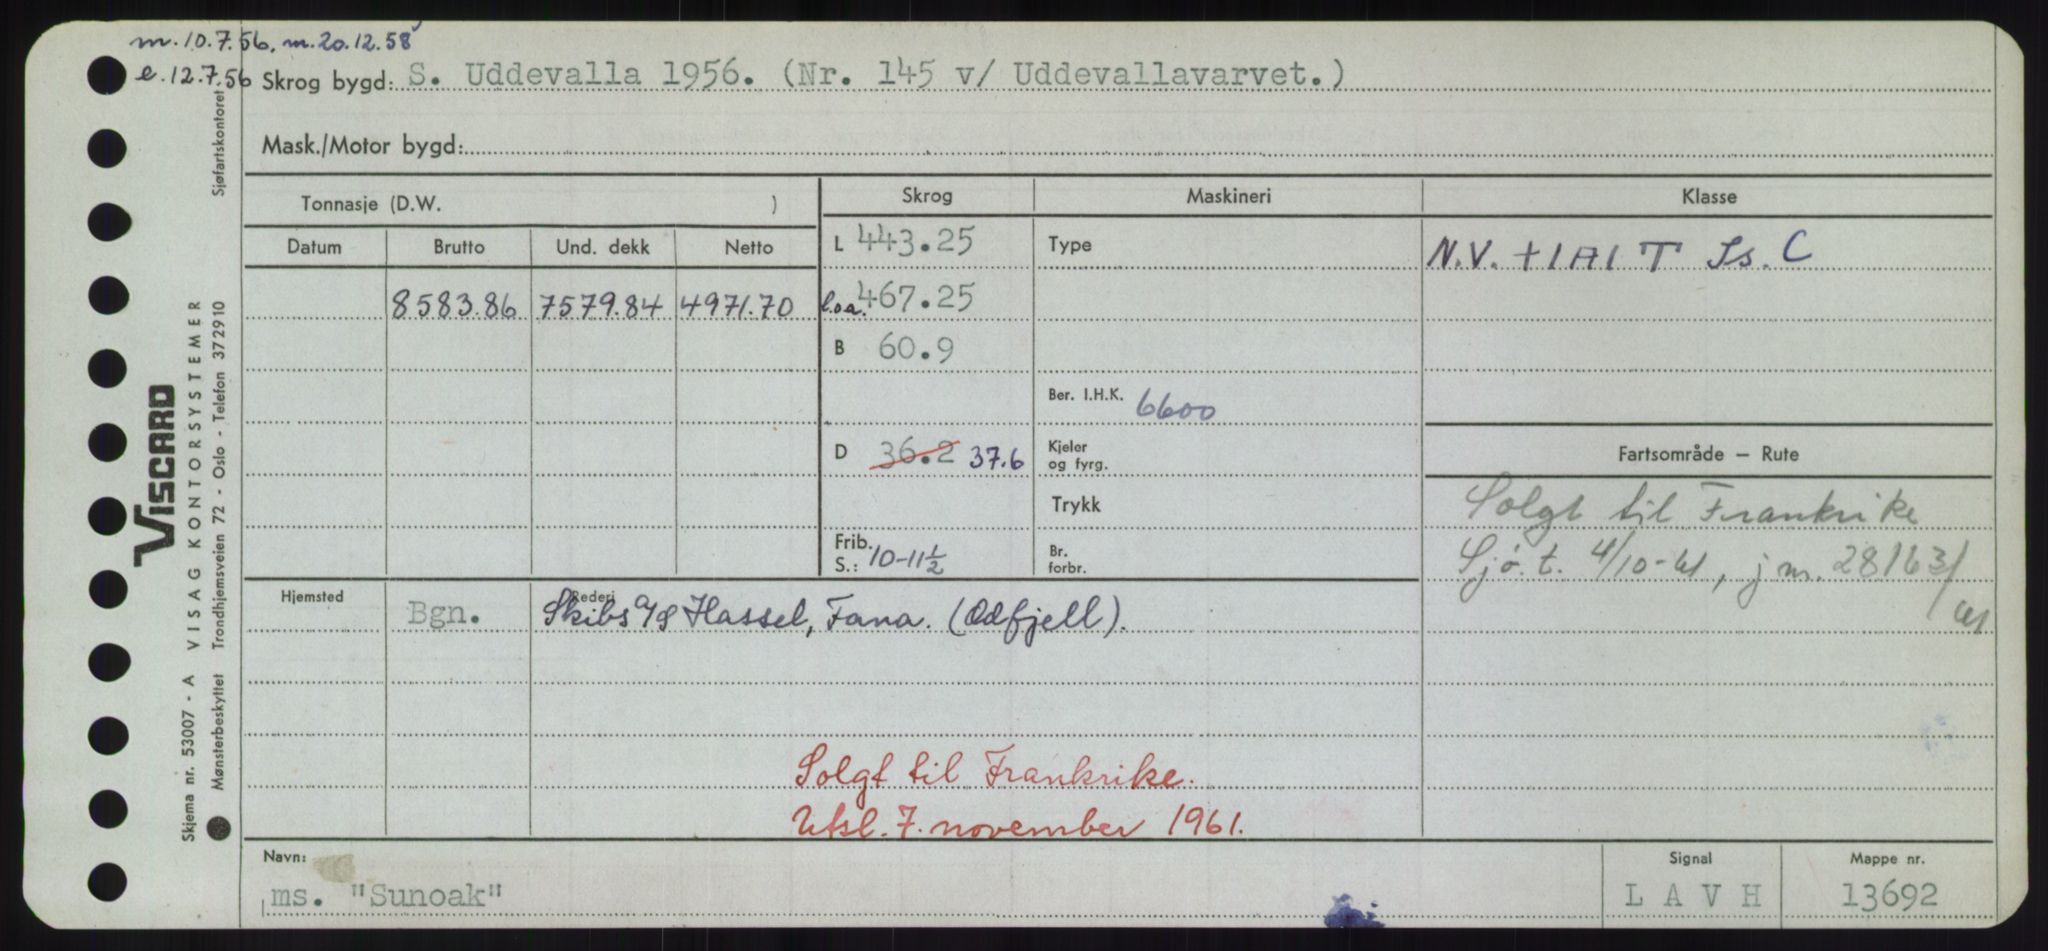 m.10.7.56, m.20.12.58
e.12.7.56
Skrog bygd: S. Uddevalla 1956. (Nr. 145 v/ Uddevallavarvet.)
Mask./Motor bygd:
Tonnasje (D.W. )
Skrog
Maskineri
Klasse
Datum
Brutto
Und. dekk
Netto
8583.86 7579.84 4971.70
L 443.25
l.o.a. 467.25
B 60.9
D 36.2 37.6
Frib.
S.: 10-11½
Type
Ber. I.H.K. 6600
Kjeler
og fyrg.
Trykk
Br.
forbr.
N.V. +1A1 T Is. C
Fartsområde — Rute
Solgt til Frankrike
Sjø.t. 4/10-61, j m. 28163/
61
Hjemsted
Bgn.
Rederi
Skibs a/s Hassel, Fana. (Odfjell).
Solgt til Frankrike.
Utsl. 7. november 1961.
Navn:
ms. "Sunoak"
Signal
L A V H
Mappe nr.
13692
VISCARD
Skjema nr. 53007 - A VISAG KONTORSYSTEMER
Mønsterbeskyttet Trondhjemsveien 72 - Oslo - Telefon 372910
Sjøfartskontoret